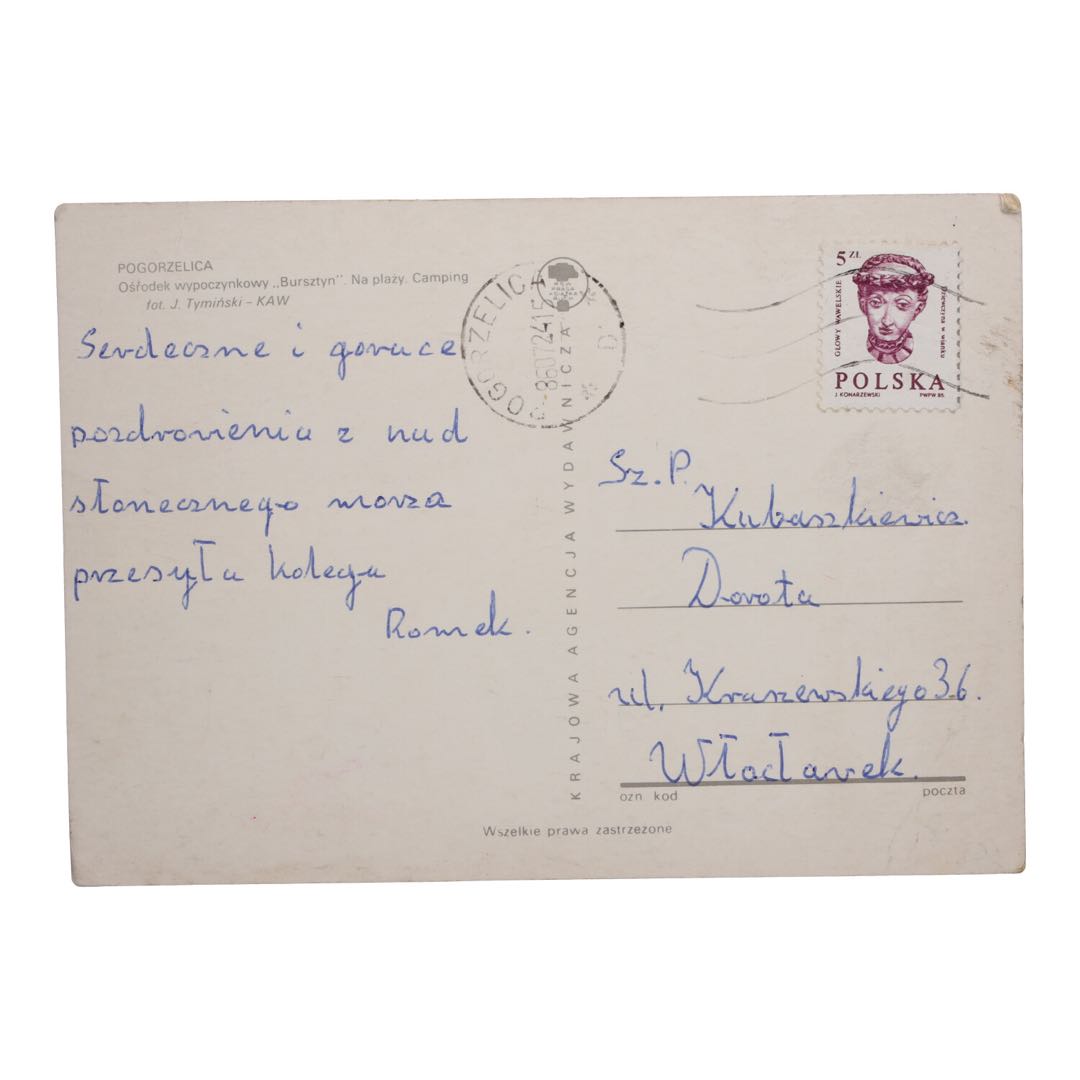 POGORZELICA
Ośrodek wypoczynkowy „Bursztyn”. Na plaży. Camping
fot. J. Tymiński – KAW
Serdeczne i gorące
pozdrowienia z nad
słonecznego morza
przesyła kolega
Romek.
POGORZELICA
86072415
D
KRAJOWA AGENCJA WYDAWNICZA
5 ZŁ
GŁOWY WAWELSKIE
Dziewczyna w wianku
POLSKA
J. KONARZEWSKI PWPW 85
Sz. P.
Kubaszkiewicz
Dorota
ul. Kraszewskiego 36.
Włocławek.
ozn. kod poczta
Wszelkie prawa zastrzeżone